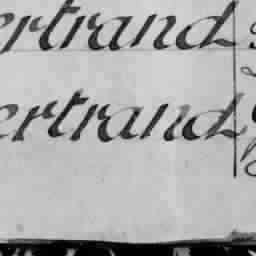 ertrand
ertrand